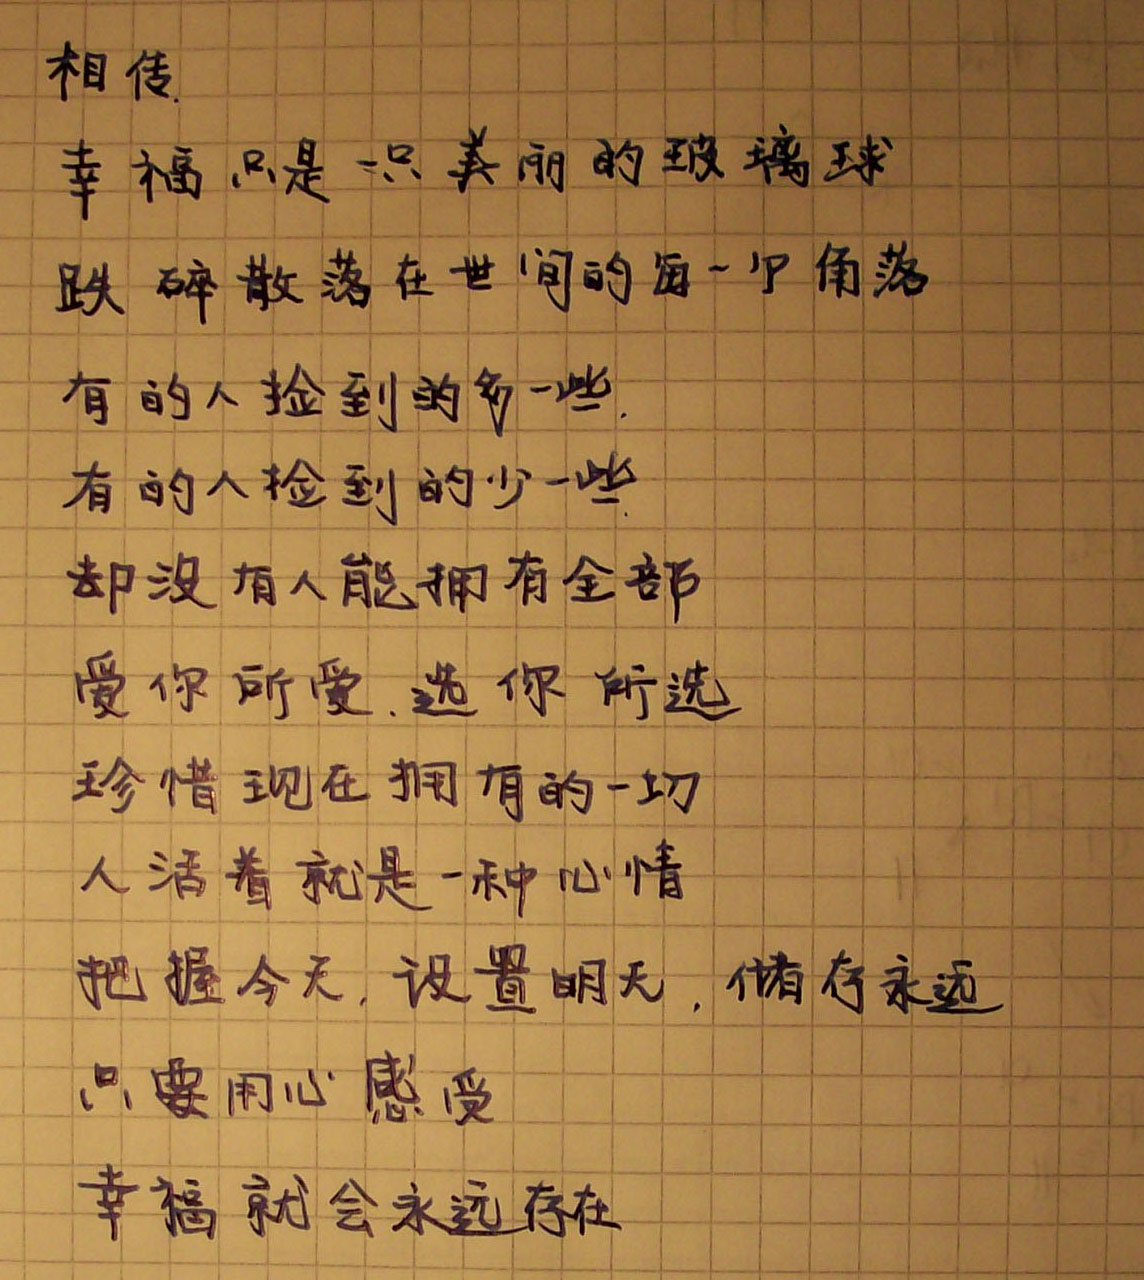 相传.
幸福只是一只美丽的玻璃球
跌碎散落在世间的每一个角落
有的人捡到的多一些.
有的人捡到的少一些.
却没有人能拥有全部
爱你所爱.选你所选
珍惜现在拥有的一切
人活着就是一种心情
把握今天,设置明天,储存永远
只要用心感受
幸福就会永远存在